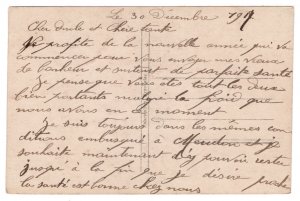 Le 30 Decembre 191
Cher oncle et Chère tante
Je profite de la nouvelle année qui va
commencer pour vous envoyer mes vœux
de bonheur et surtout de parfaite santé
Je pense que vous êtes tout les deux
bien portants malgré le froid que
nous avons en ce moment
Je suis toujours dans les mêmes con
ditions embusqué à Meudon et je
souhaite maintenant d'y pouvoir rester
jusqu'à la fin que je désire proche
la santé est bonne chez nous